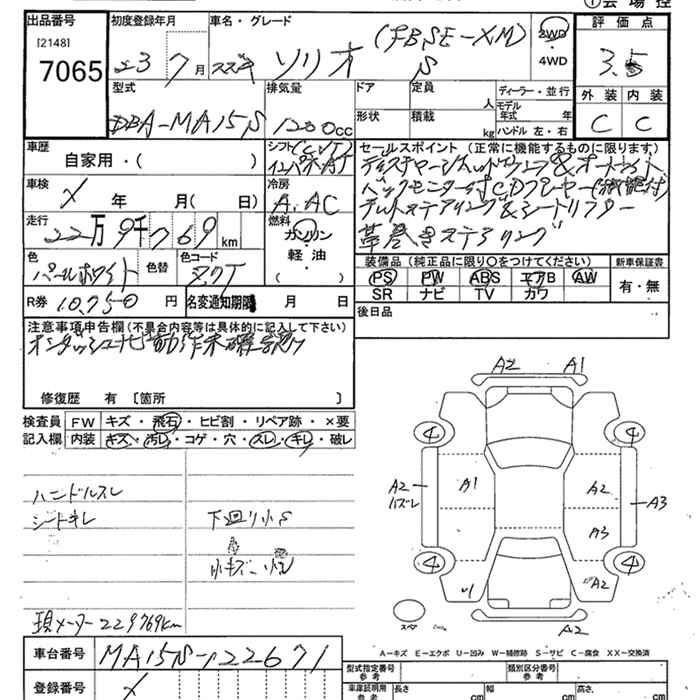 ①会場控
出品番号 [2148] 7065
初度登録年月 23 7 月
車名・グレード スズキ ソリオ S
2WD ・ 4WD
評価点 3.5
型式 DBA-MA15S
排気量 1200cc
ドア
形状
定員 人
積載 kg
ディーラー・並行
モデル年式 年
ハンドル 左・右
外装 C
内装 C
車歴 自家用・( )
シフト
車検 X 年 月( 日)
冷房 A.AC
走行 22万9千769km
燃料 ガソリン・軽油( )
色 パールホワイト
色替
色コード
R券 10,750 円
名変通知期限 月 日
セールスポイント(正常に機能するものに限ります)
チルトステアリング&シートリフター
革巻きステアリング
装備品(純正品に限り○をつけてください)
PS PW ABS エアB AW
SR ナビ TV カワ
新車保証書 有・無
後日品
注意事項申告欄(不具合内容等は具体的に記入して下さい)
修復歴 有〔箇所 〕
検査員記入欄
FW キズ・飛石・ヒビ割・リペア跡・×要
内装 キズ・汚レ・コゲ・穴・スレ・キレ・破レ
ハンドルスレ
シートキレ
下廻り小S
現メーター229769km
A2 A1
4 4
A2 ハズレ A1 A2 A3
A3
4 4
A2
スペア A2
A-キズ E-エクボ U-凹み W-補修跡 S-サビ C-腐食 XX-交換済
車台番号 MA15S-122671
登録番号 X
型式指定番号 参考
類別区分番号 参考
車庫証明用 参考 長さ cm 幅 cm 高さ cm